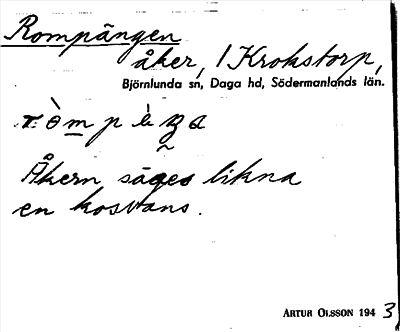 Rompängen
åker, / Krokstorp,
Björnlunda sn, Daga hd, Södermanlands län.
Åkern säges likna
en kosvans.
ARTUR OLSSON 1943